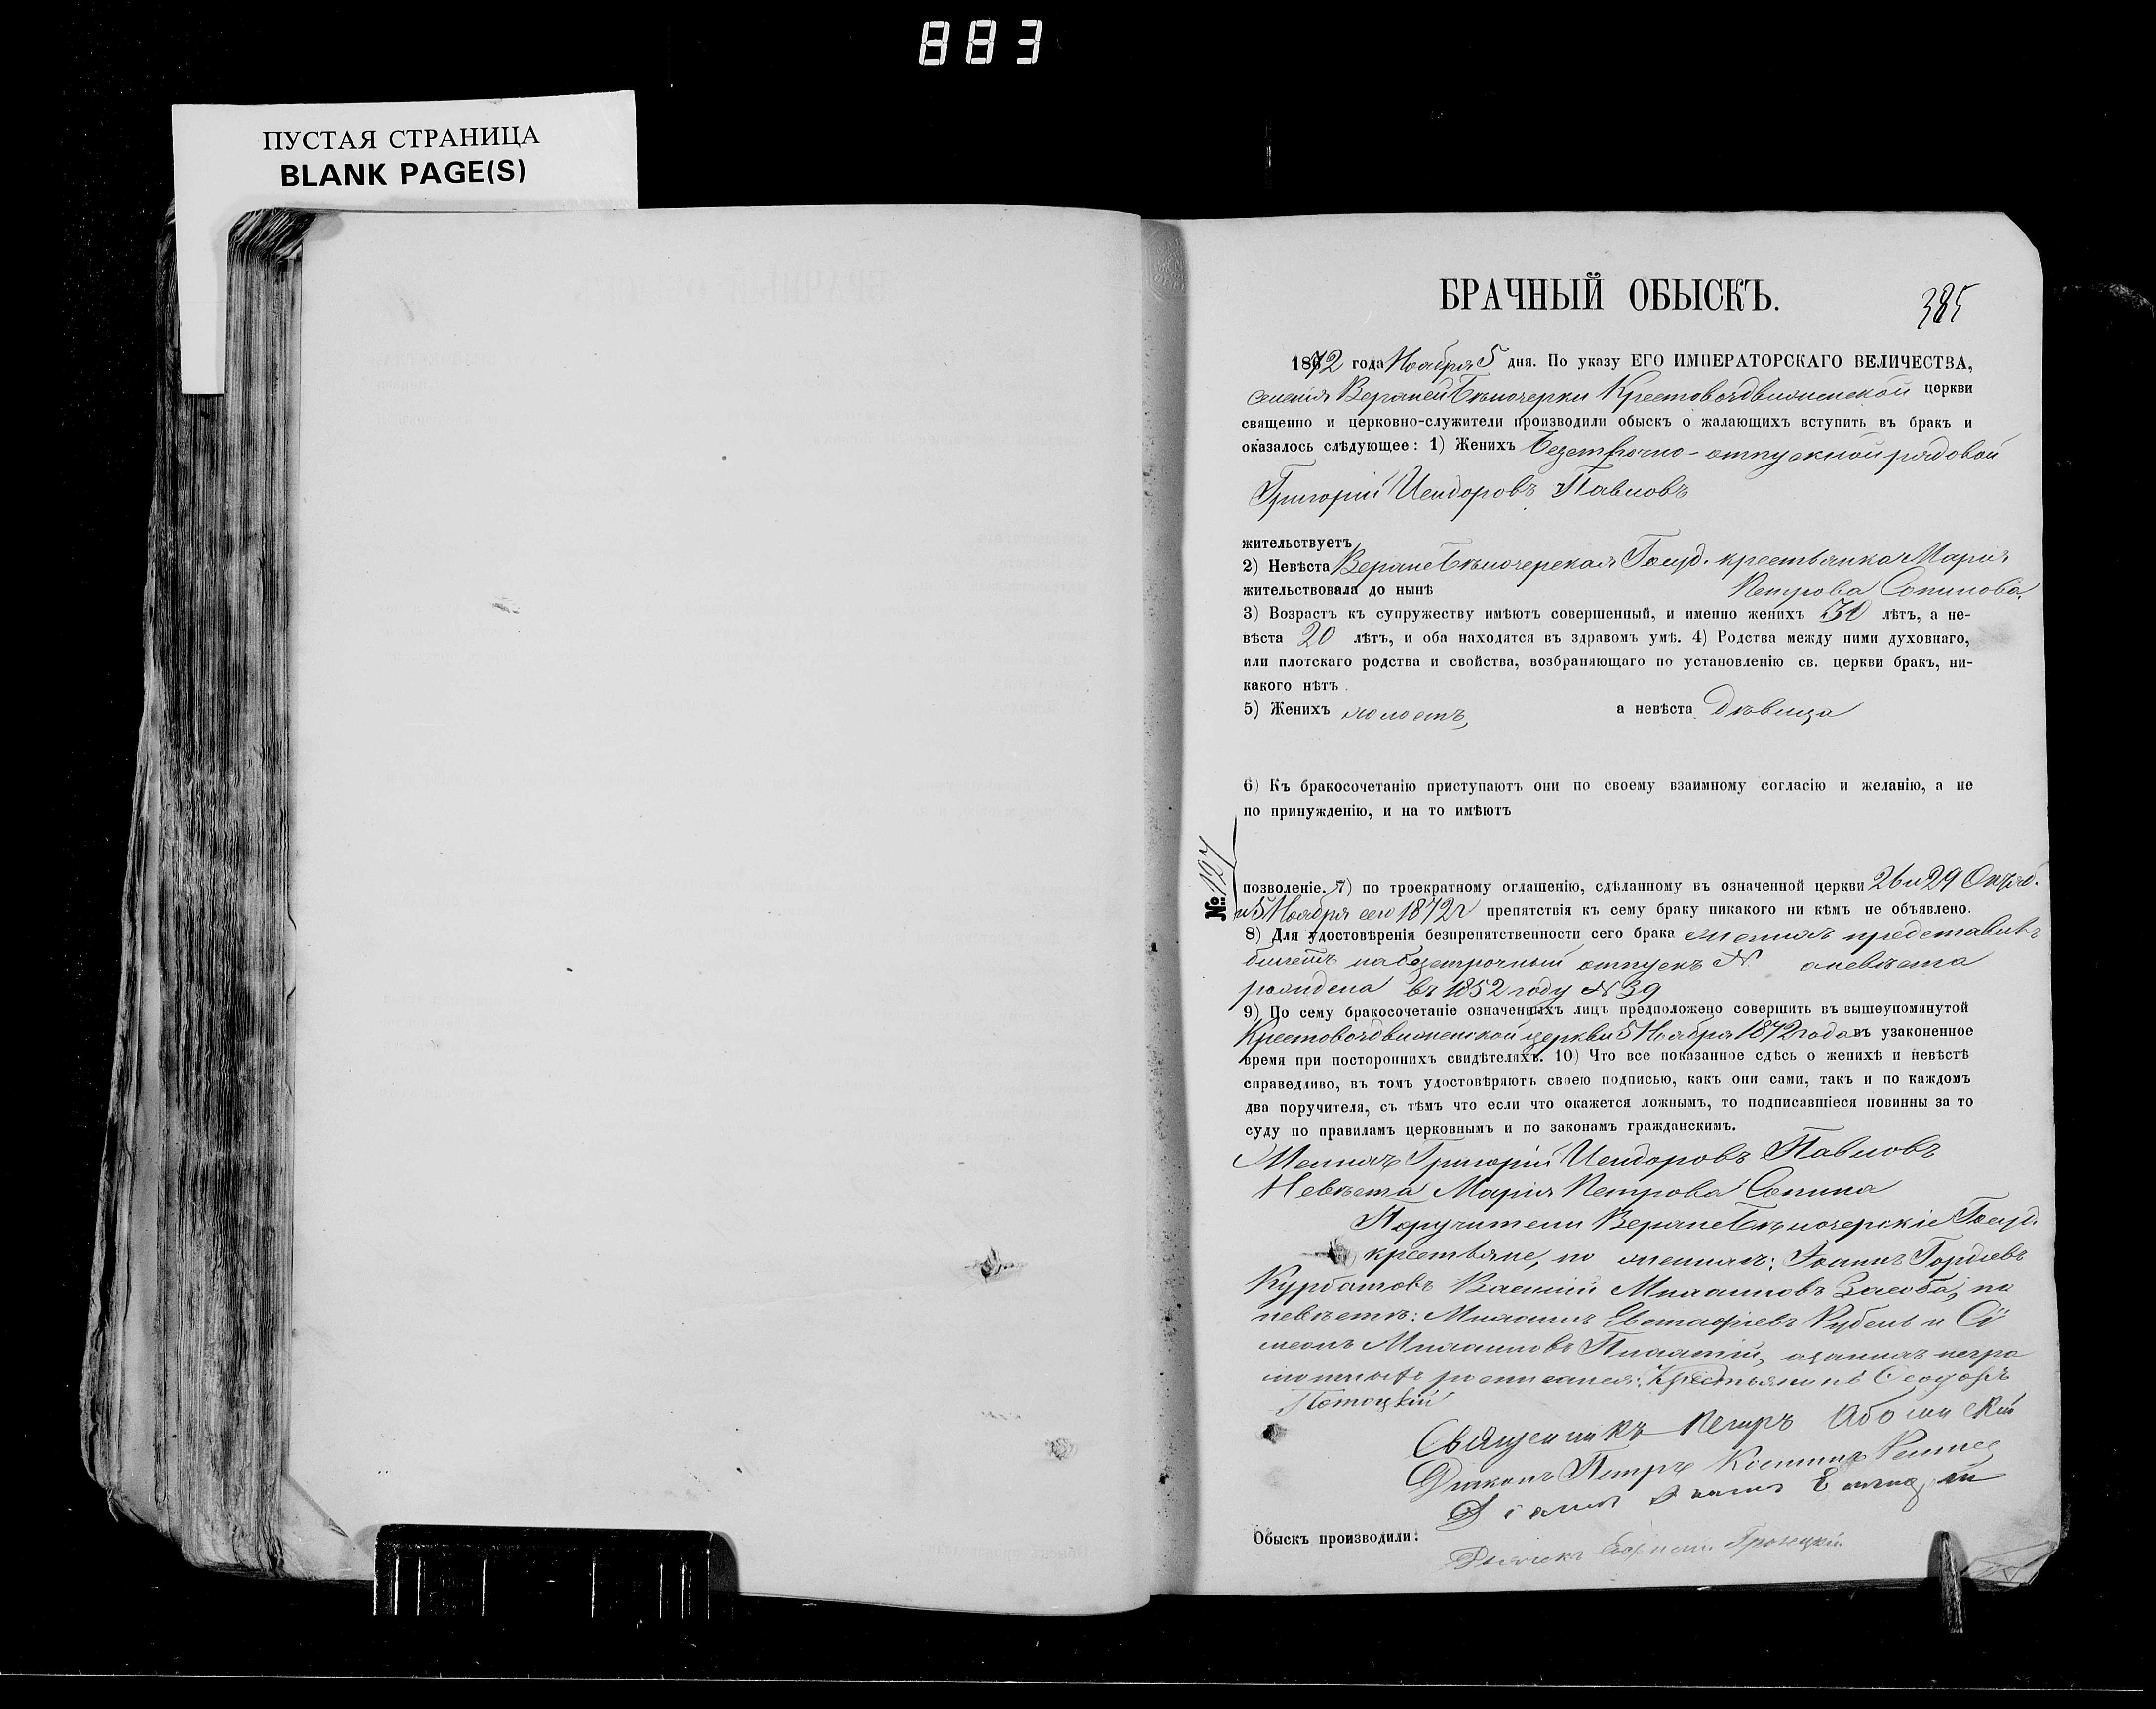 883
ПУСТАЯ СТРАНИЦА
BLANK PAGE(S)
БРАЧНЫЙ ОБЫСКЪ.
385
1872 года Ноября 5 дня. По указу ЕГО ИМПЕРАТОРСКАГО ВЕЛИЧЕСТВА,
селенія Верхней Бѣлочерки Крестовоздвиженской церкви
священно и церковно-служители производили обыскъ о жалающихъ вступить въ бракъ и
оказалось слѣдующее: 1) Женихъ безстрочно-отпускной рядовой
Григорій Исидоровъ Павловъ
жительствуетъ
2) Невѣста Верхнебѣлочерская Госуд. крестьянка Марія
жительствовала до нынѣ Петрова Сопинова
3) Возрастъ къ супружеству имѣютъ совершенный, и именно женихъ 30 лѣтъ, а не-
вѣста 20 лѣтъ, и оба находятся въ здравомъ умѣ. 4) Родства между ними духовнаго,
или плотскаго родства и свойства, возбраняющаго по установленію св. церкви бракъ, ни-
какого нѣтъ.
5) Женихъ холостъ, а невѣста дѣвица
6) Къ бракосочетанію приступаютъ они по своему взаимному согласію и желанію, а не
по принужденію, и на то имѣютъ
№ 127
позволеніе. 7) по троекратному оглашенію, сдѣланному въ означенной церкви 26 и 29 Октяб.
и 5 Ноября сего 1872 г препятствія къ сему браку никакого ни кѣмъ не объявлено.
8) Для удостовѣренія безпрепятственности сего брака женихъ представилъ
билетъ на безстрочный отпускъ № а невѣста
рождена въ 1852 году № 39
9) По сему бракосочетаніе означенныхъ лицъ предположено совершить въ вышеупомянутой
Крестовоздвиженской церкви 5 Ноября 1872 года въ узаконенное
время при постороннихъ свидѣтеляхъ. 10) Что все показанное сдѣсь о женихѣ и невѣстѣ
справедливо, въ томъ удостовѣряютъ своею подписью, какъ они сами, такъ и по каждомъ
два поручителя, съ тѣмъ что если что окажется ложнымъ, то подписавшіеся повинны за то
суду по правиламъ церковнымъ и по законамъ гражданскимъ.
Женихъ Григорій Исидоровъ Павловъ
Невѣста Марія Петрова Сопина
Поручители Верхнебѣлочерскіе Госуд.
крестьяне, по женихѣ: Іоаннъ Гордіевъ
Курбатовъ Василій Михаиловъ Засоба, по
невѣстѣ: Михаилъ Евстафіевъ Рубель и Си
меонъ Михаиловъ, а за нихъ негра
мотныхъ росписался: Крестьянинъ Ѳеодоръ
Потоцкій
Священникъ Петръ
Діаконъ Петръ
Обыскъ производили:
Дьячекъ